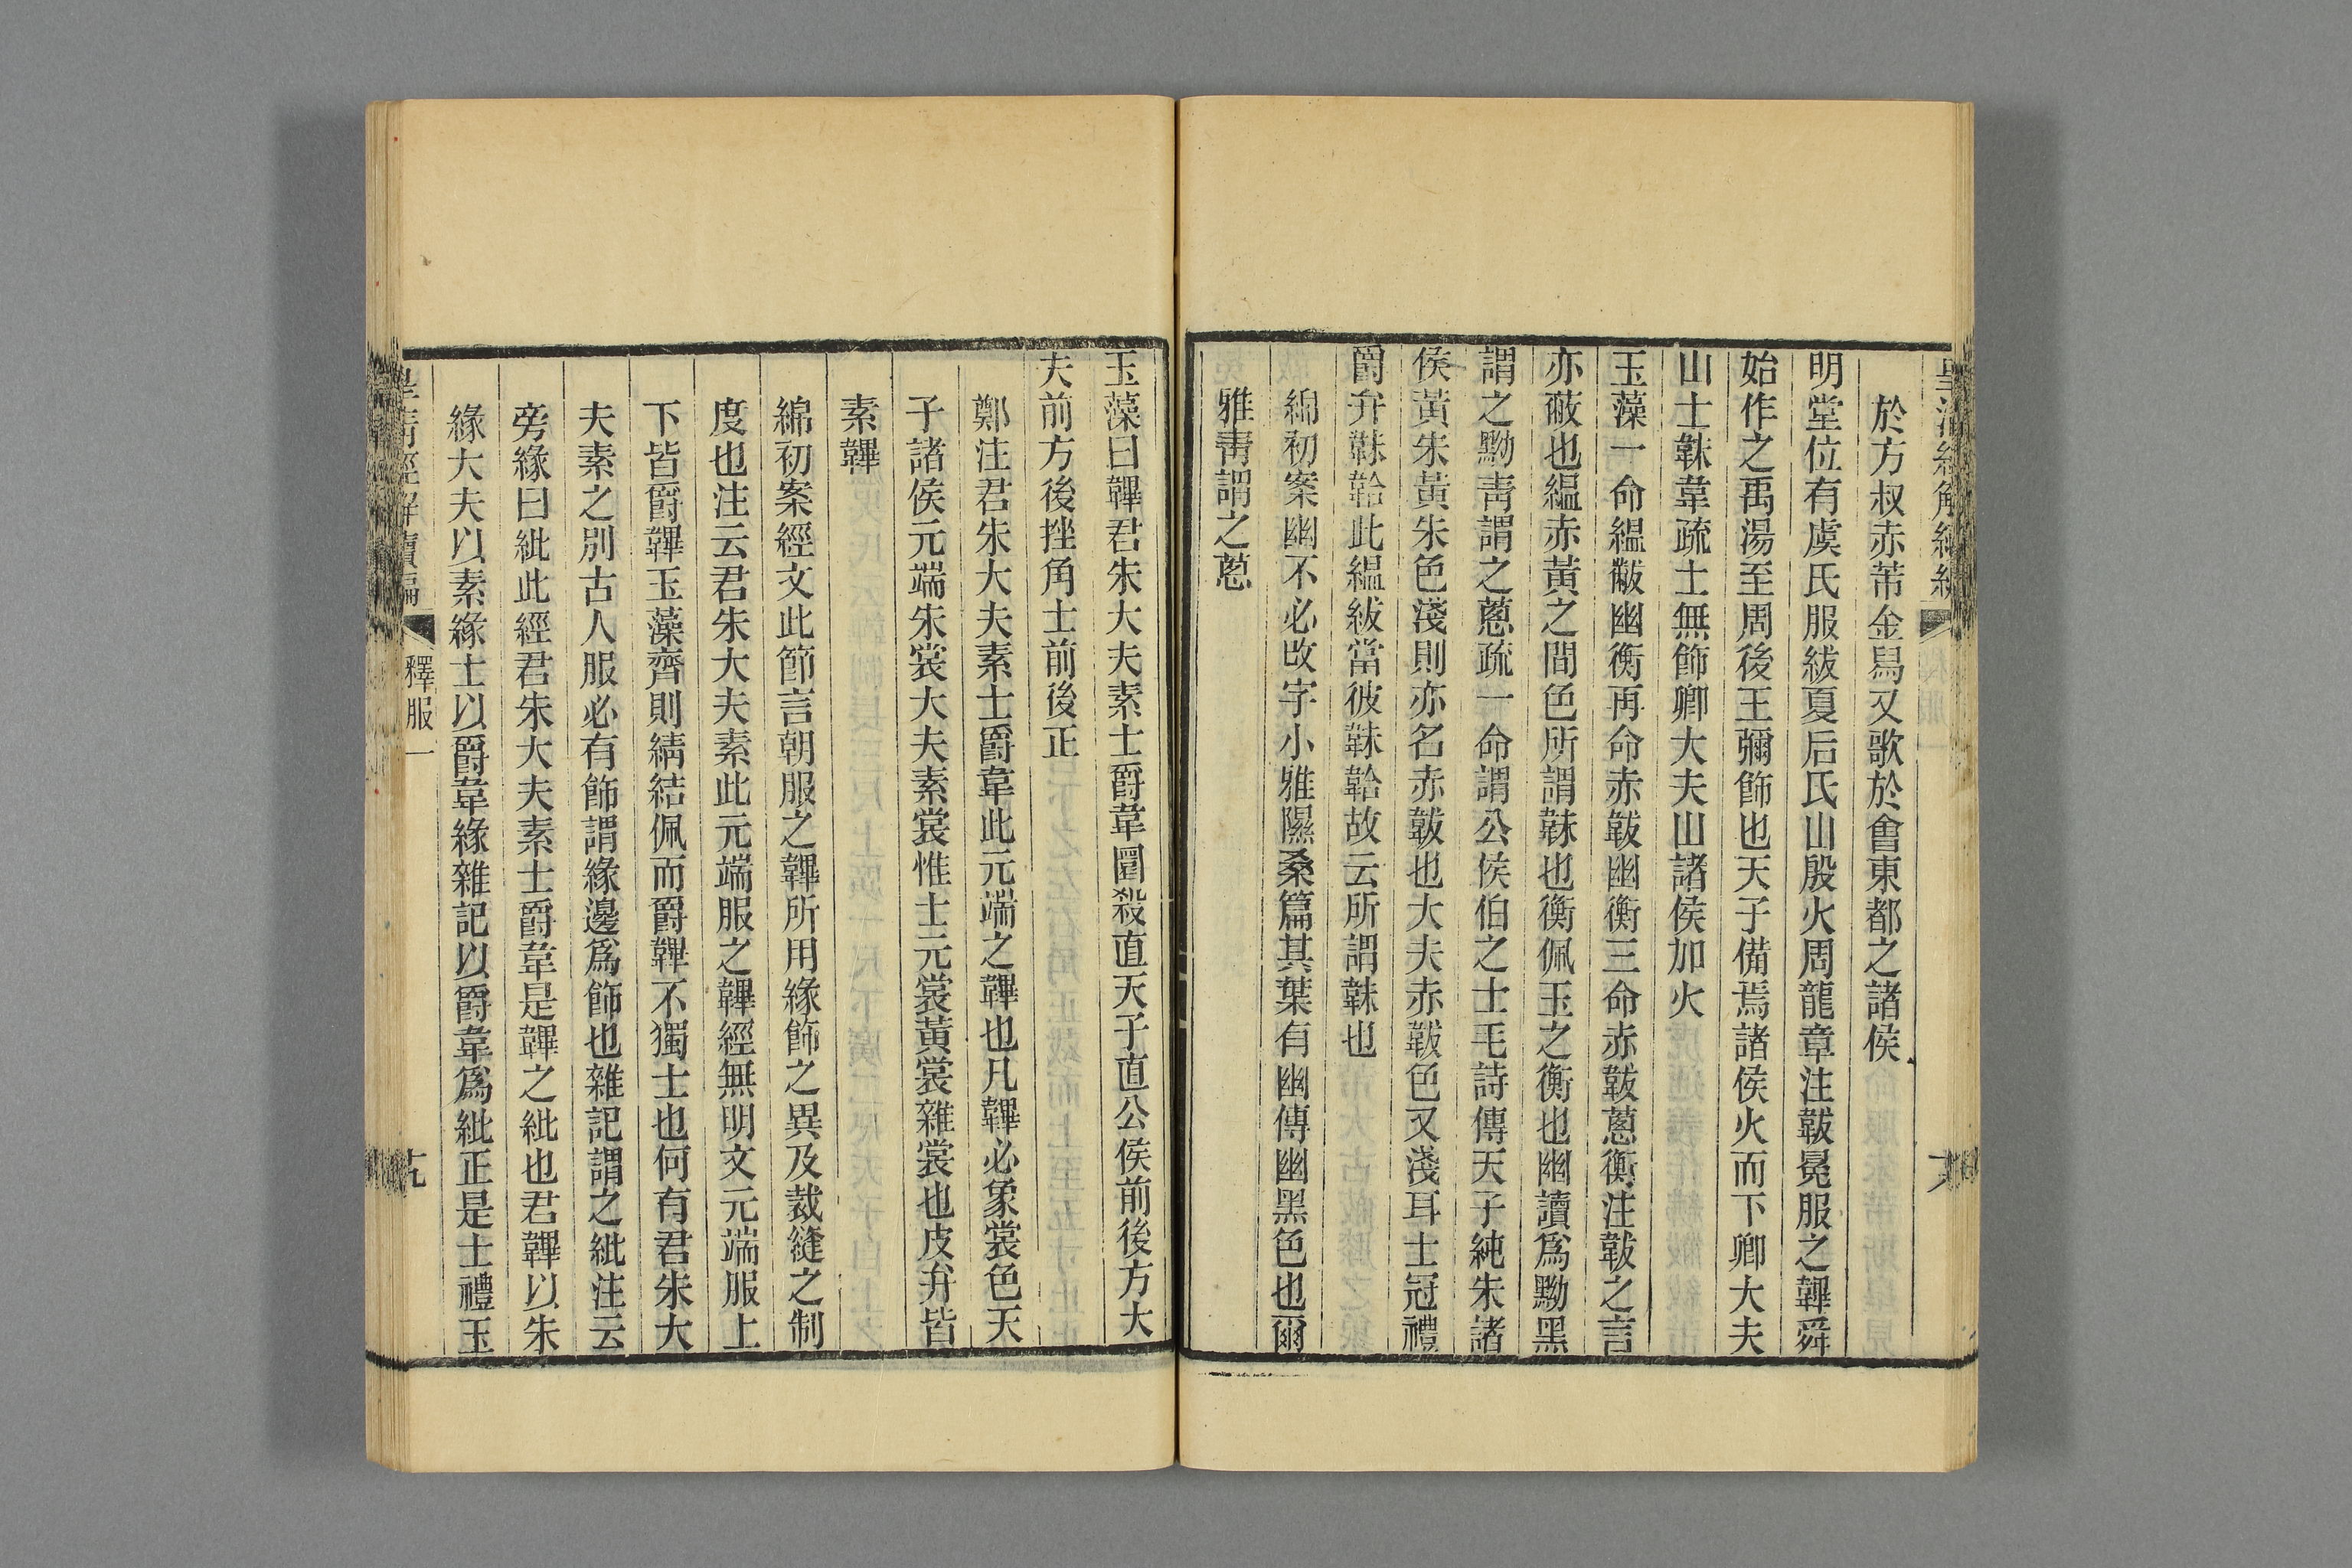 於方叔赤芾金舄又歌於會東都之諸侯
明堂位有虞氏服紱夏后氏山殷火周龍章注韍冕服之韠舜
始作之禹湯至周後王彌飾也天子備焉諸侯火而下卿大夫
山士韎韋疏士無飾卿大夫山諸侯加火
玉藻一命縕黻幽衡再命赤韍幽衡三命赤韍蔥衡注韍之言
亦蔽也縕赤黃之間色所謂韎也衡佩玉之衡也幽讀爲黝黑
謂之黝靑謂之蔥疏一命謂公侯伯之士毛詩傳天子純朱諸
侯黃朱黃朱色淺則亦名赤韍也大夫赤韍色又淺耳士冠禮
爵弁韎韐此縕紱當彼韎韐故云所謂韎也
綿初案幽不必改字小雅隰桑篇其葉有幽傳幽黑色也爾
雅靑謂之蔥
玉藻曰韠君朱大夫素士爵韋圜殺直天子直公侯前後方大
夫前方後挫角士前後正
鄭注君朱大夫素士爵韋此元端之韠也凡韠必象裳色天
子諸侯元端朱裳大夫素裳惟士元裳黃裳雜裳也皮弁皆
素韠
綿初案經文此節言朝服之韠所用緣飾之異及裁縫之制
度也注云君朱大夫素此元端服之韠經無明文元端服上
下皆爵韠玉藻齊則綪結佩而爵韠不獨士也何有君朱大
夫素之別古人服必有飾謂緣邊爲飾也雜記謂之紕注云
旁緣曰紕此經君朱大夫素士爵韋是韠之紕也君韠以朱
緣大夫以素緣士以爵韋緣雜記以爵韋爲紕正是士禮玉
皇清經解續編
釋服一